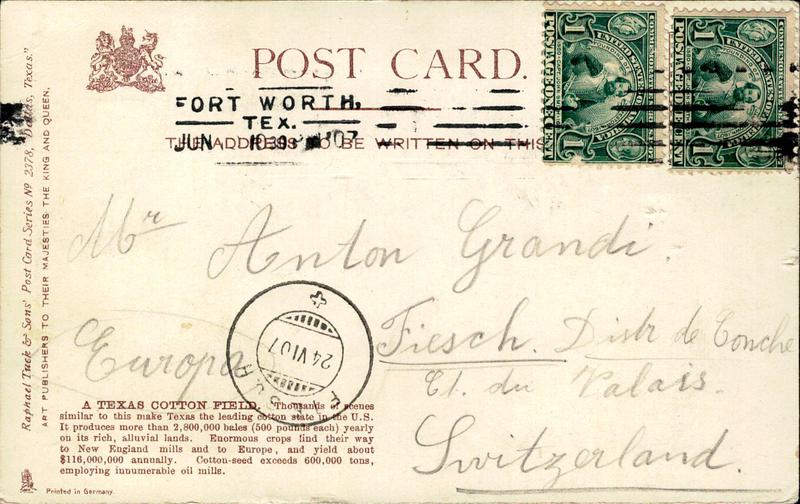 POST CARD.
FORT WORTH,
TEX.
JUN 10
07
THE ADDRESS TO BE WRITTEN ON THIS
COMMEMORATIVE
UNITED STATES OF AMERICA
1 1
POSTAGE ONE CENT
COMMEMORATIVE
UNITED STATES OF AMERICA
1 1
POSTAGE ONE CENT
Raphael Tuck & Sons' Post Card Series No 2378, "Dallas, Texas."
ART PUBLISHERS TO THEIR MAJESTIES THE KING AND QUEEN.
Mr Anton Grandi.
Europa
Fiesch. Distr de Conche
Ct. du Valais.
Switzerland.
24 VI 07
A TEXAS COTTON FIELD. Thousands of scenes
similar to this make Texas the leading cotton state in the U.S.
It produces more than 2,800,000 bales (500 pounds each) yearly
on its rich, alluvial lands. Enormous crops find their way
to New England mills and to Europe, and yield about
$116,000,000 annually. Cotton-seed exceeds 600,000 tons,
employing innumerable oil mills.
Printed in Germany.